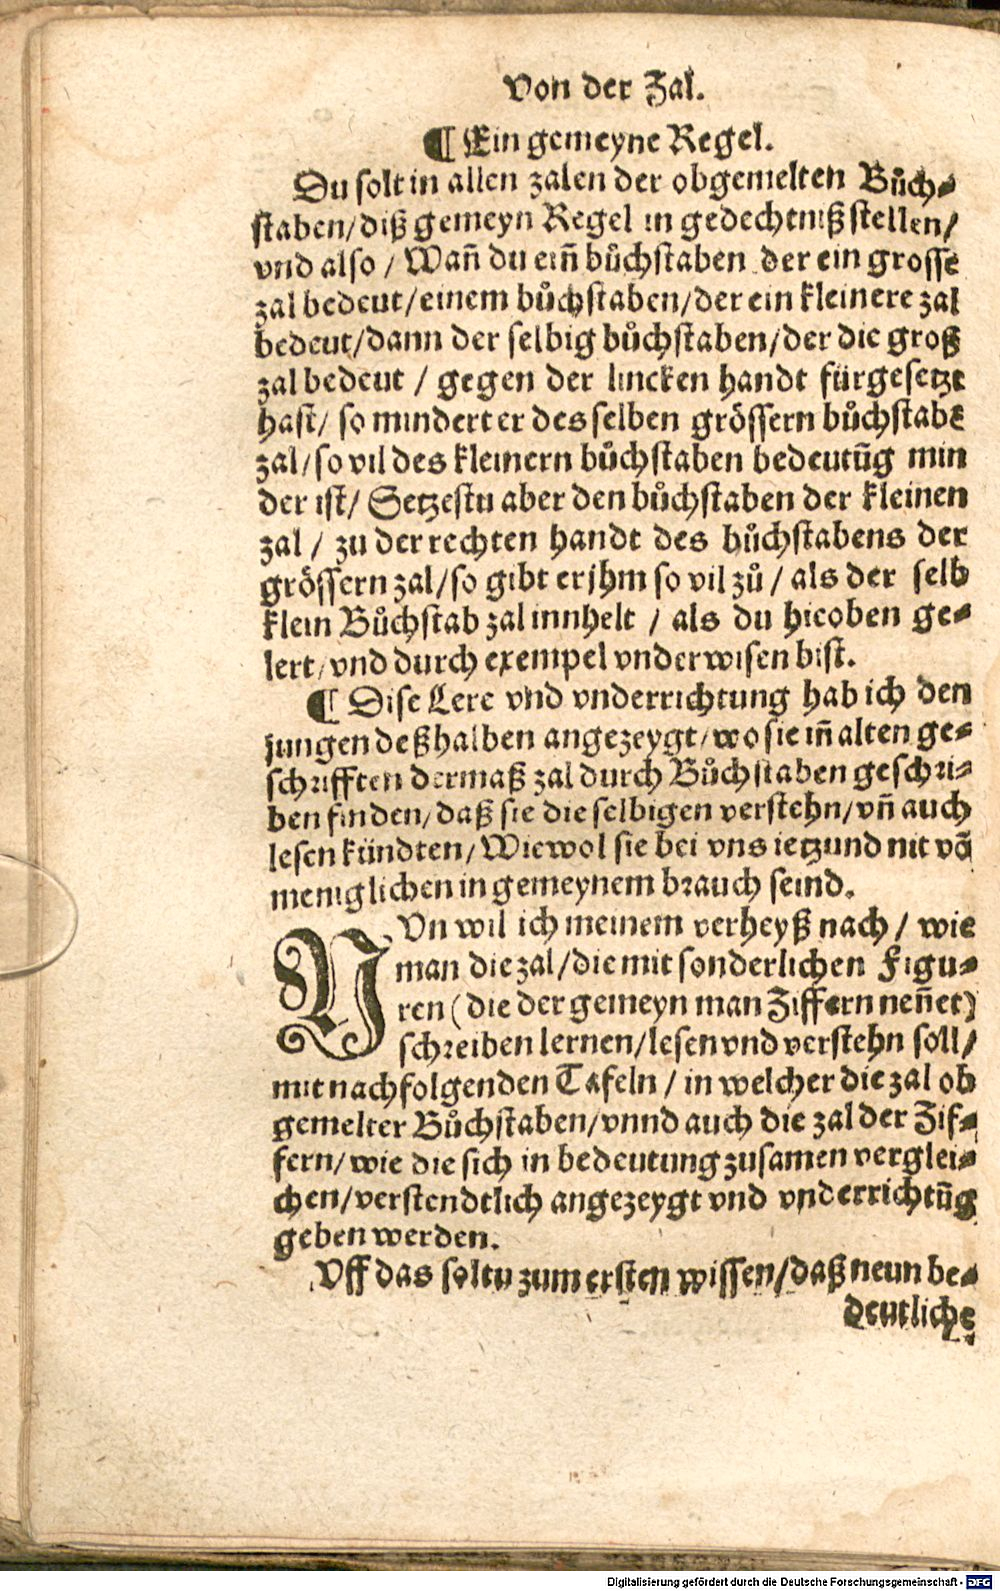 Von der Zal.
¶ Ein gemeyne Regel.
Du solt in allen zalen der obgemelten Bůch⸗
staben/ diß gemeyn Regel in gedechtniß stellen/
vnd also / Wañ du eiñ bůchstaben der ein grosse
zal bedeut/ einem bůchstaben/ der ein kleinere zal
bedeut/ dann der selbig bůchstaben/ der die groß
zal bedeut / gegen der lincken handt fürgesetzt
hast/ so mindert er des selben grössern bůchstabē
zal/ so vil des kleinern bůchstaben bedeutũg min
der ist/ Setzestu aber den bůchstaben der kleinen
zal / zu der rechten handt des bůchstabens der
grössern zal/ so gibt er jhm so vil zů / als der selb
klein Bůchstab zal innhelt / als du hieoben ge⸗
lert/ vnd durch exempel vnderwisen bist.
¶ Dise Lere vnd vnderrichtung hab ich den
jungen deßhalben angezeygt/ wo sie iñ alten ge⸗
schrifften dermaß zal durch Bůchstaben geschri⸗
ben finden/ daß sie die selbigen verstehn/ vñ auch
lesen kündten/ Wiewol sie bei vns ietzund nit vō
meniglichen in gemeynem brauch seind.
NVn wil ich meinem verheyß nach / wie
man die zal/ die mit sonderlichen Figu⸗
ren (die der gemeyn man Ziffern neñet)
schreiben lernen/ lesen vnd verstehn soll/
mit nachfolgenden Tafeln / in welcher die zal ob
gemelter Bůchstaben/ vnnd auch die zal der Zif⸗
fern/ wie die sich in bedeutung zusamen verglei⸗
chen/ verstendtlich angezeygt vnd vnderrichtũg
geben werden.
Vff das soltu zum ersten wissen/ daß neun be⸗
deutliche
Digitalisierung gefördert durch die Deutsche Forschungsgemeinschaft - DFG